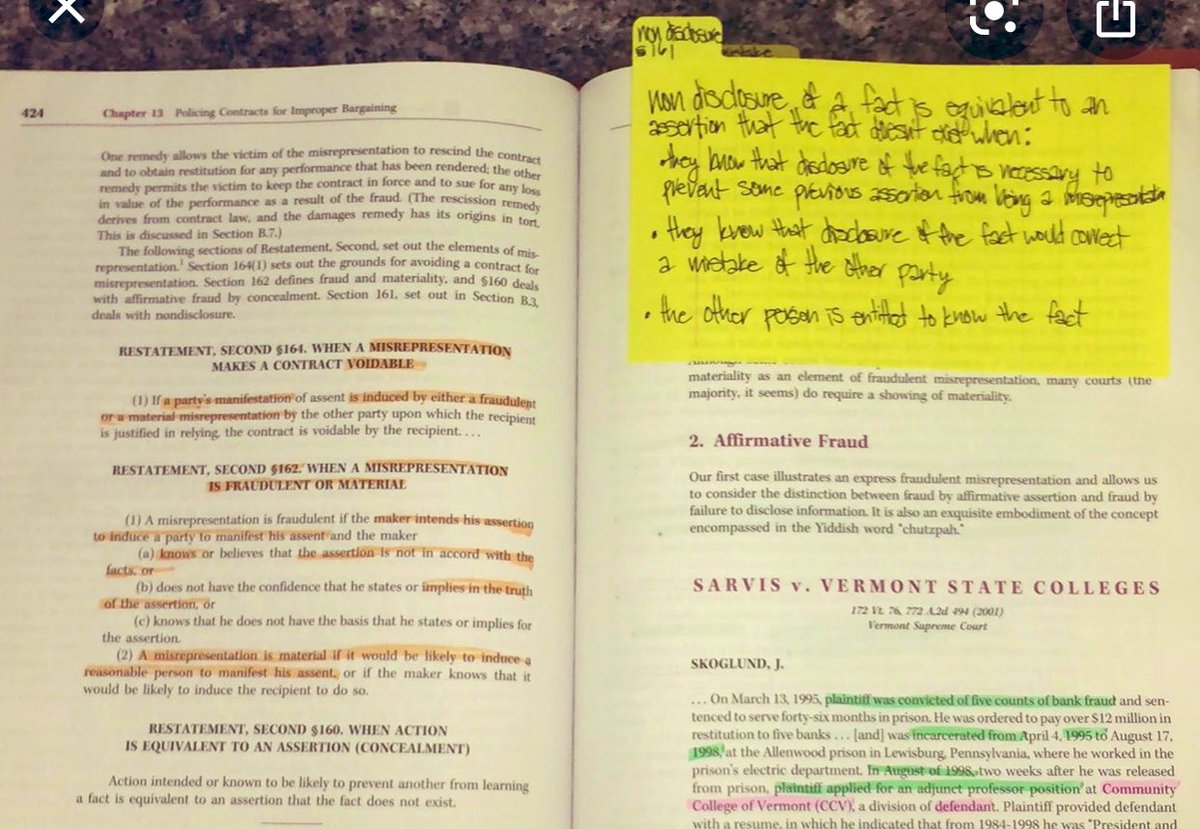 424
Chapter 13 Policing Contracts for Improper Bargaining
One remedy allows the victim of the misrepresentation to rescind the contract
and to obtain restitution for any performance that has been rendered; the other
remedy permits the victim to keep the contract in force and to sue for any loss
in value of the performance as a result of the fraud. (The rescission remedy
derives from contract law, and the damages remedy has its origins in tort.
This is discussed in Section B.7.)
The following sections of Restatement, Second, set out the elements of mis-
representation.1 Section 164(1) sets out the grounds for avoiding a contract for
misrepresentation. Section 162 defines fraud and materiality, and §160 deals
with affirmative fraud by concealment. Section 161, set out in Section B.3,
deals with nondisclosure.
RESTATEMENT, SECOND §164. WHEN A MISREPRESENTATION
MAKES A CONTRACT VOIDABLE
(1) If a party's manifestation of assent is induced by either a fraudulent
or a material misrepresentation by the other party upon which the recipient
is justified in relying, the contract is voidable by the recipient. . . .
RESTATEMENT, SECOND §162. WHEN A MISREPRESENTATION
IS FRAUDULENT OR MATERIAL
(1) A misrepresentation is fraudulent if the maker intends his assertion
to induce a party to manifest his assent and the maker
(a) knows or believes that the assertion is not in accord with the
facts, or
(b) does not have the confidence that he states or implies in the truth
of the assertion, or
(c) knows that he does not have the basis that he states or implies for
the assertion.
(2) A misrepresentation is material if it would be likely to induce a
reasonable person to manifest his assent, or if the maker knows that it
would be likely to induce the recipient to do so.
RESTATEMENT, SECOND §160. WHEN ACTION
IS EQUIVALENT TO AN ASSERTION (CONCEALMENT)
Action intended or known to be likely to prevent another from learning
a fact is equivalent to an assertion that the fact does not exist.
non disclosure
§ 161
mistake
non disclosure of a fact is equivalent to an
assertion that the fact doesn't exist when:
• they know that disclosure of the fact is necessary to
prevent some previous assertion from being a misrepresentation
• they know that disclosure of the fact would correct
a mistake of the other party
• the other person is entitled to know the fact
materiality as an element of fraudulent misrepresentation, many courts (the
majority, it seems) do require a showing of materiality.
2. Affirmative Fraud
Our first case illustrates an express fraudulent misrepresentation and allows us
to consider the distinction between fraud by affirmative assertion and fraud by
failure to disclose information. It is also an exquisite embodiment of the concept
encompassed in the Yiddish word "chutzpah."
SARVIS v. VERMONT STATE COLLEGES
172 Vt. 76, 772 A.2d 494 (2001)
Vermont Supreme Court
SKOGLUND, J.
. . . On March 13, 1995, plaintiff was convicted of five counts of bank fraud and sen-
tenced to serve forty-six months in prison. He was ordered to pay over $12 million in
restitution to five banks . . . [and] was incarcerated from April 4, 1995 to August 17,
1998, at the Allenwood prison in Lewisburg, Pennsylvania, where he worked in the
prison's electric department. In August of 1998, two weeks after he was released
from prison, plaintiff applied for an adjunct professor position at Community
College of Vermont (CCV), a division of defendant. Plaintiff provided defendant
with a resume, in which he indicated that from 1984-1998 he was "President and